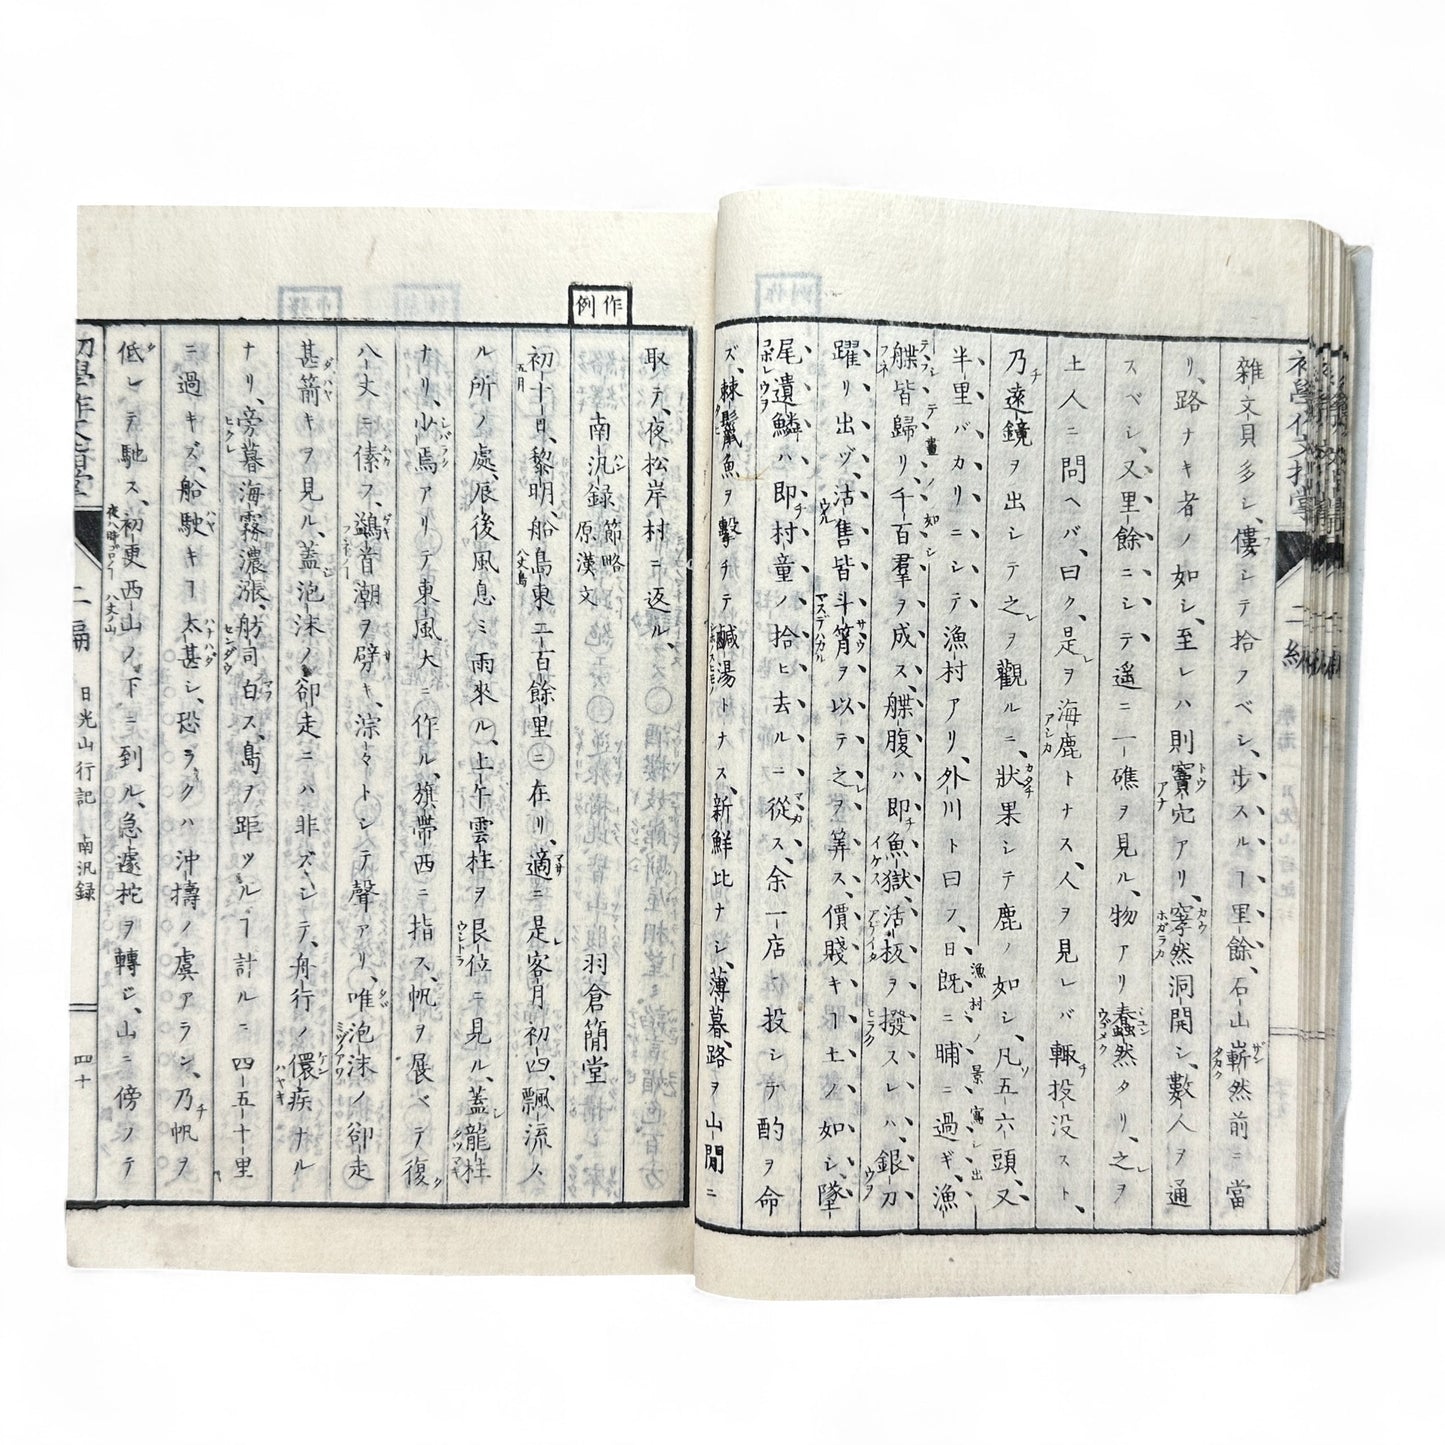 雜文貝多シ、僂シテ拾フベシ、歩スルヿ里餘、石山嶄然前ニ當
リ、路ナキ者ノ如シ、至レハ則竇穴アリ、寥然洞開シ、數人ヲ通
スベシ、又里餘ニシテ遥ニ一礁ヲ見ル、物アリ蠢然タリ、之ヲ
土人ニ問ヘバ、曰ク、是ヲ海鹿トナス、人ヲ見レバ輙投没スト、
乃遠鏡ヲ出シテ之ヲ觀ルニ、狀果シテ鹿ノ如シ、凡五六頭、又
半里バカリニシテ漁村アリ、外川ト曰フ、日既ニ晡ニ過ギ、漁
艓皆歸リ、千百羣ヲ成ス、艓腹ハ即魚獄、活板ヲ撥スレハ、銀刀
躍リ出ヅ、沽售皆斗筲ヲ以テ之ヲ筭ス、價賤キヿ土ノ如シ、墜
尾遺鱗ハ、即村童ノ拾ヒ去ルニ從ス、余一店ニ投シテ酌ヲ命
ズ、棘鬣魚ヲ擊チテ鹹湯トナス、新鮮比ナシ、薄暮路ヲ山間ニ
作例
取テ、夜松岸村ニ返ル、
南汎録 節略 原漢文 羽倉簡堂
初十日、黎明、船島東二百餘里ニ在リ、適ニ是客月初四、飄流ス
ル所ノ處、辰後風息ミ雨來ル、上午雲柱ヲ艮位ニ見ル、蓋龍柱
ナリ、少焉アリテ東風大ニ作ル、旗帶西ニ指ス、帆ヲ展ベテ復
八丈ニ傃フ、鷁首潮ヲ劈キ、淙々トシテ聲アリ、唯泡沫ノ卻走
甚箭キヲ見ル、蓋泡沫ノ卻走ニハ非ズシテ、舟行ノ儇疾ナル
ナリ、旁暮海霧濃漲、舫司白ス、島ヲ距ツルヿ計ルニ四五十里
ニ過キズ、船駛キヿ太甚シ、恐ラクハ沖擣ノ虞アラン、乃帆ヲ
低レテ馳ス、初更西山ノ下ニ到ル、急遽柁ヲ轉ジ、山ニ傍ノテ
二編 日光山行記 南汎録 四十